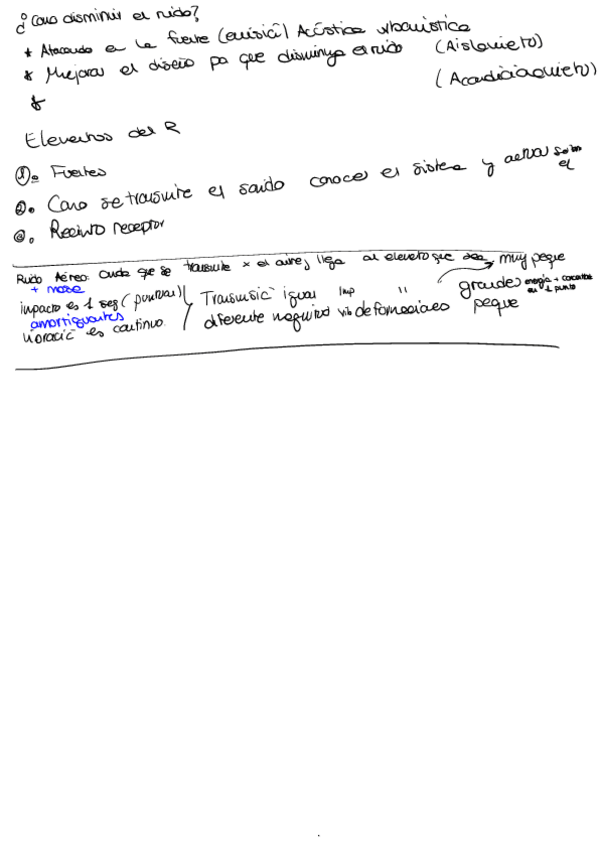 ¿Como disminuir el ruido?
* Atacando en la fuente (emisic͂) Acústica urbanistica
* Mejorar el diseño pa que disminuya el ruido (Aislamieto)
(Acondicionamieto)
*
Elementos del R
1. Fuentes
2. Como se transmite el sonido conocer el sistema y actuar sobre el
3. Recinto receptor
Ruido Aéreo: onda que se transmite x el aire, llega al elemeto que muy peque
+ masa
impacto es 1 seg (puntual) Transmisic͂ igual imp " grandes energía + en 1 punto
amortiguantes
vibracic͂ es continuo. diferente magnitud vib deformaciones peque